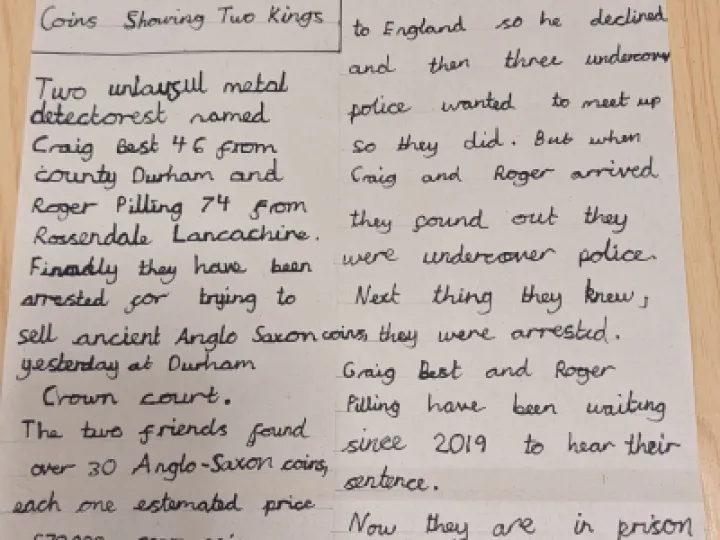 Coins Showing Two Kings
Two unlawful metal
detectorest named
Craig Best 46 from
county Durham and
Roger Pilling 74 from
Rossendale Lancachire.
Finadly they have been
arrested for trying to
sell ancient Anglo Saxon coins,
yesterday at Durham
Crown court.
The two friends found
over 30 Anglo-Saxon coins,
each one estemated price
to England so he declined
and then three undercover
police wanted to meet up
so they did. But when
Craig and Roger arrived
they found out they
were undercover police.
Next thing they knew,
they were arrested.
Craig Best and Roger
Pilling have been waiting
since 2019 to hear their
sentence.
Now they are in prison